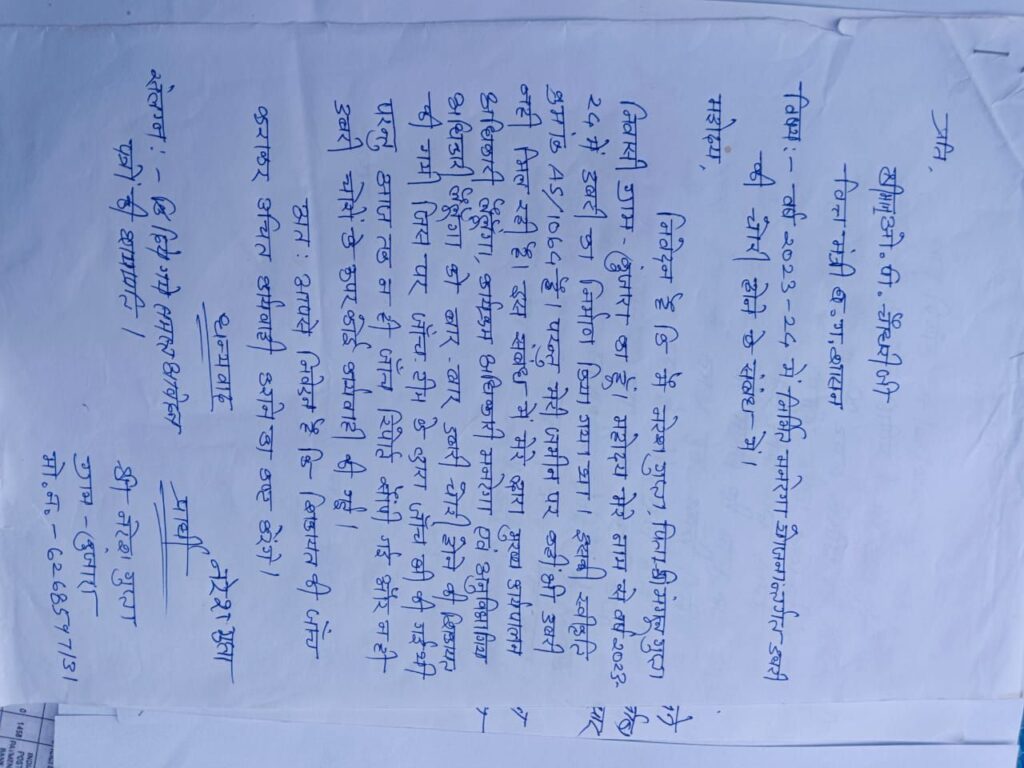 प्रति,
श्रीमान् ओ. पी. चौधरी जी
वित्त मंत्री छ. ग. शासन
विषय:- वर्ष 2023-24 में निर्मित मनरेगा योजनांतर्गत डबरी
की चोरी होने के संबंध में।
महोदय,
निवेदन है कि मैं नरेश गुप्ता, पिता श्री गुप्ता
निवासी ग्राम- कुंजारा का हूँ। महोदय मेरे नाम से वर्ष 2023-
24 में डबरी का निर्माण किया गया था। इसकी स्वीकृति
क्रमांक AS/1064 है। परन्तु मेरी जमीन पर कहीं भी डबरी
नहीं मिल रही है। इस संबंध में मेरे द्वारा मुख्य कार्यपालन
अधिकारी लैलूंगा, कार्यक्रम अधिकारी मनरेगा एवं अनुविभागीय
अधिकारी लैलूंगा को बार-बार डबरी चोरी होने की शिकायत
की गयी जिस पर जाँच टीम के द्वारा जाँच की गई थी
परन्तु आज तक ना ही जाँच रिपोर्ट सौंपी गई और न ही
डबरी चोरों के उपर कोई कार्यवाही की गई।
अत: आपसे निवेदन है कि शिकायत की जाँच
कराकर उचित कार्यवाही करने का कष्ट करेंगे।
धन्यवाद
संलग्न:- कि दिये गये समस्त आवेदन
पत्रों की छायाप्रति।
प्रार्थी
नरेश गुप्ता
श्री नरेश गुप्ता
ग्राम- कुंजारा
मो.नं.- 6268547731